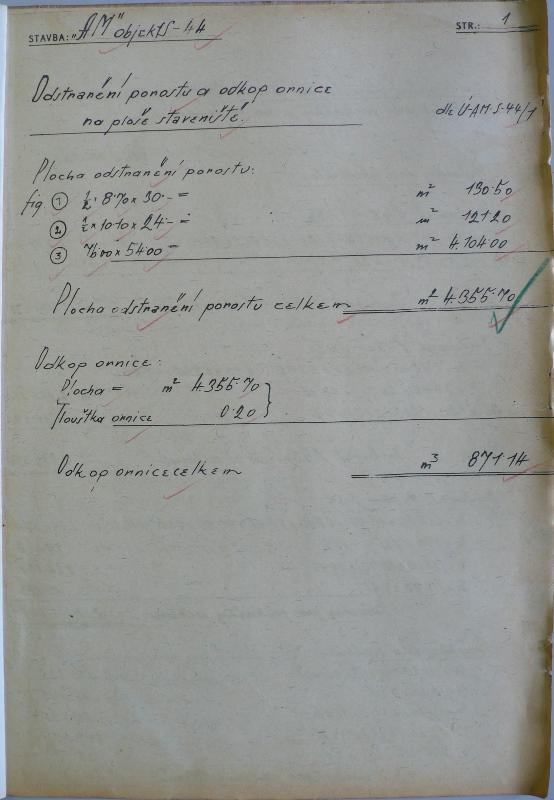 STAVBA: "AM" objekt S-44 STR.: 1
Odstranění porostu a odkop ornice
na ploše staveniště. dle Ú-AM-S-44/1
Plocha odstranění porostu:
fig ① ½·8·70×30·- = m² 130·50
② ½×10·10×24·- = m² 121·20
③ 76·00×54·00 = m² 4.104·00
Plocha odstranění porostu celkem m² 4.355·70
Odkop ornice:
Plocha = m² 4.355·70
Tloušťka ornice 0·20
Odkop ornice celkem m³ 871·14